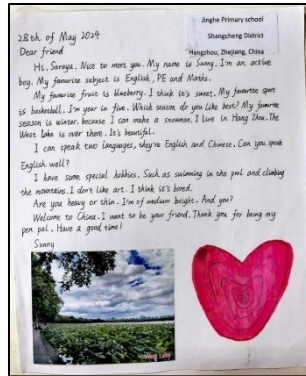 Jinghe Primary school
Shangcheng District
Hangzhou, Zhejiang, China
28th of May 2024
Dear friend
Hi, Soraya. Nice to meet you. My name is Sunny. I'm an active
boy. My favourite subject is English, PE and Maths.
My favourite fruit is blueberry. I think it's sweet. My favorite sport
is basketball. I'm year in five. Which season do you like best? My favorite
season is winter. because I can make a snowman. I live in Hang Zhou. The
West lake is over there. It's beautiful.
I can speak two languages, they're English and Chinese. Can you speak
English well?
I have some special hobbies. Such as swimming in the pool and climbing
the mountains. I don't like art. I think it's bored.
Are you heavy or thin. I'm of medium height. And you?
Welcome to China. I want to be your friend. Thank you for being my
pen pal. Have a good time!
Sunny
West Lake